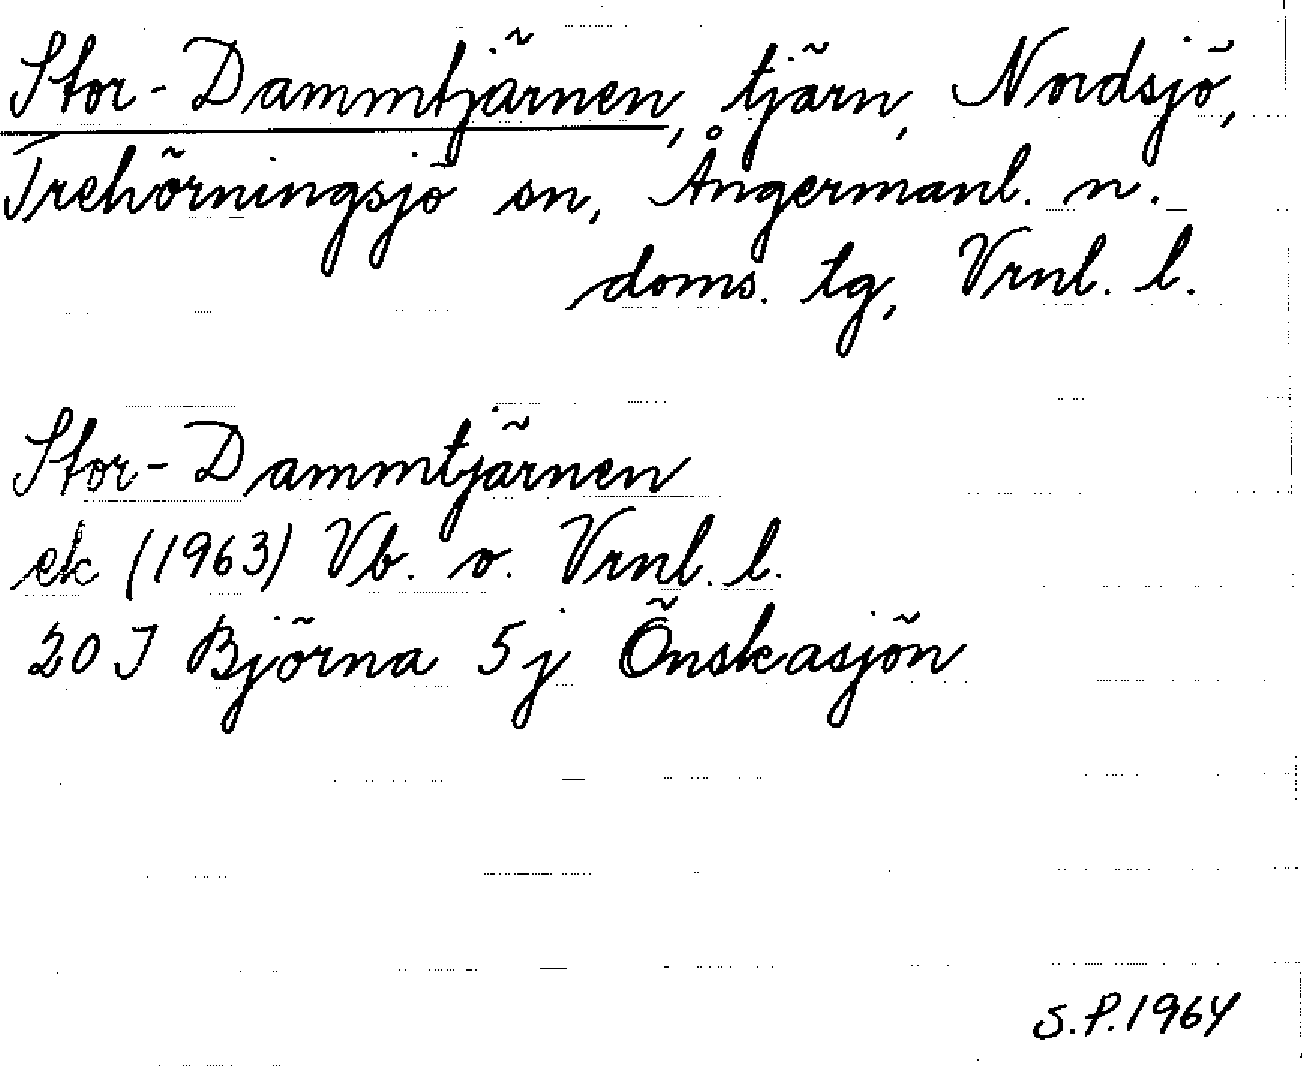 Stor-Dammtjärnen, tjärn, Nordsjö,
Trehörningsjö sn, Ångermanl. n.
doms. tg, Vrnl. l.
Stor-Dammtjärnen
ek (1963) Vb. o. Vrnl. l.
20 I Björna 5j Önskasjön
S.P.1964